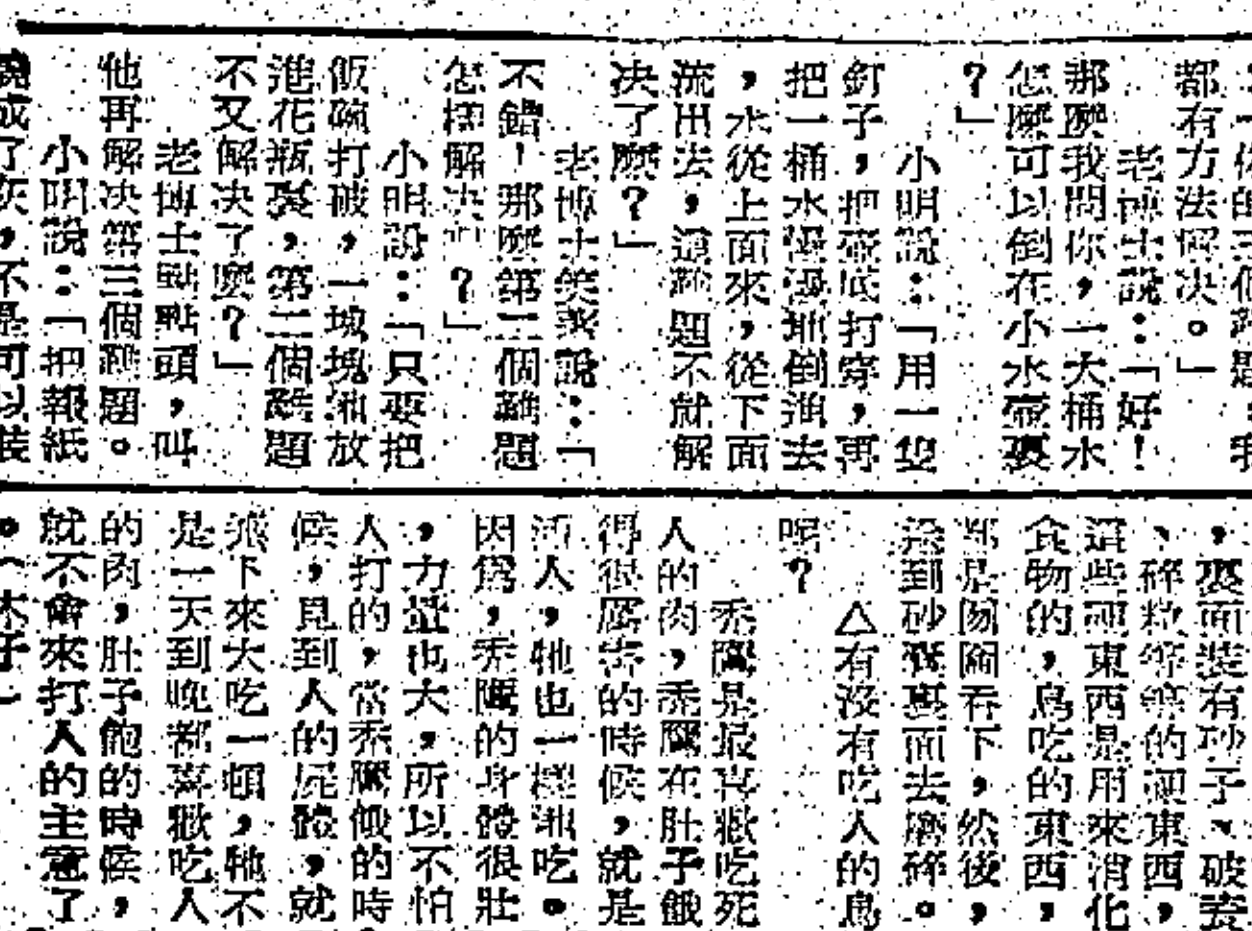 ：「你的三個難題，我
都有方法解決。」
老博士說：「好！
那麼我問你，一大桶水
怎麼可以倒在小水壺裏
？」
小明說：「用一隻
釘子，把壺底打穿，再
把一桶水慢慢地倒進去
，水從上面來，從下面
流出去，這難題不就解
決了麼？」
老博士笑笑說：「
不錯！那麼第二個難題
怎樣解決　？」
小明說：「只要把
飯碗打破，一塊塊地放
進花瓶裏，第二個難題
不又解決了麼？」
老博士點點頭，叫
他再解決第三個難題。
小明說：「把報紙
燒成了灰，不是可以裝
，裏面裝有砂子、破瓷
、碎粒等等的硬東西，
這些硬東西是用來消化
食物的，鳥吃的東西，
都是囫圇吞下，然後，
到砂囊裏面去磨碎。
△有沒有吃人的鳥
呢？
禿鷹是最喜歡吃死
人的肉，禿鷹在肚子餓
得很厲害的時候，就是
活人，牠也一樣地吃。
因爲，禿鷹的身體很壯
，力量也大，所以不怕
人打的，當禿鷹餓的時
候，見到人的屍體，就
飛下來大吃一頓，牠不
是一天到晚都喜歡吃人
的肉，肚子飽的時候，
就不會來打人的主意了
。（木子）